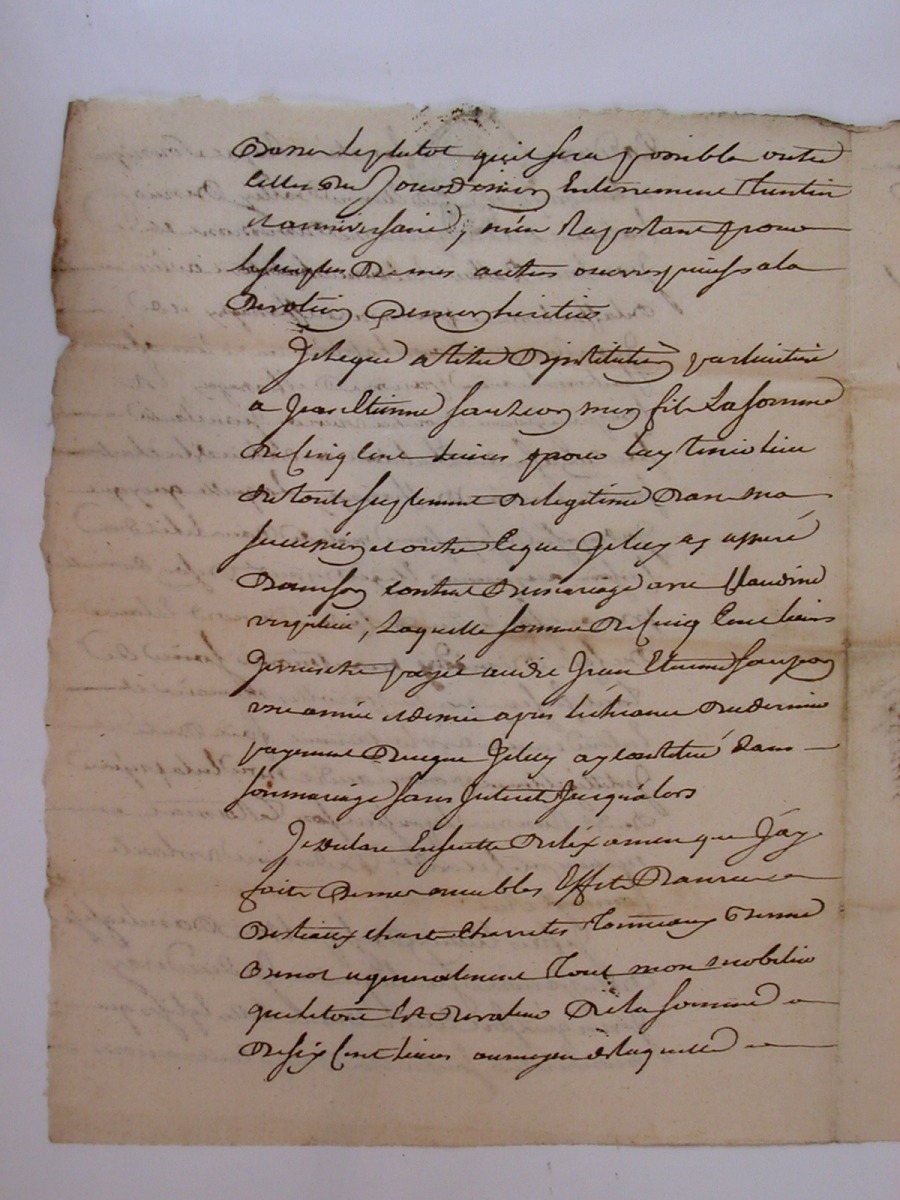 le plutot quil sera possible outre
celles de Enterrement
et anniversaire, m'en Raportant pour
le surplus de mes autres oeuvres pies a la
devotion de mon heritier
Je legue a titre d'institution particuliere
a Jean Etienne mon fils La somme
de Cinq Cent Livres pour luy tenir lieu
de tout suplement de legitime dans ma
succession et outre Ce que Je luy ay
dans son contrat de mariage avec Claudine
Laquelle somme de Cinq Cent Livres
payé audit Jean Etienne
une année et demie après l'écheance du dernier
payement de ce que Je luy ay constitué dans
son mariage sans Interet Jusqu'alors
Je declare Ensuitte de l'éxamen que J'ay
fait de mes meubles Effets Danrées
Bestiaux chars Charrettes Tonneaux
et generalement Tout mon mobilier
que le tout Est de valeur de la somme
de six Cent Livres au moyen de laquelle